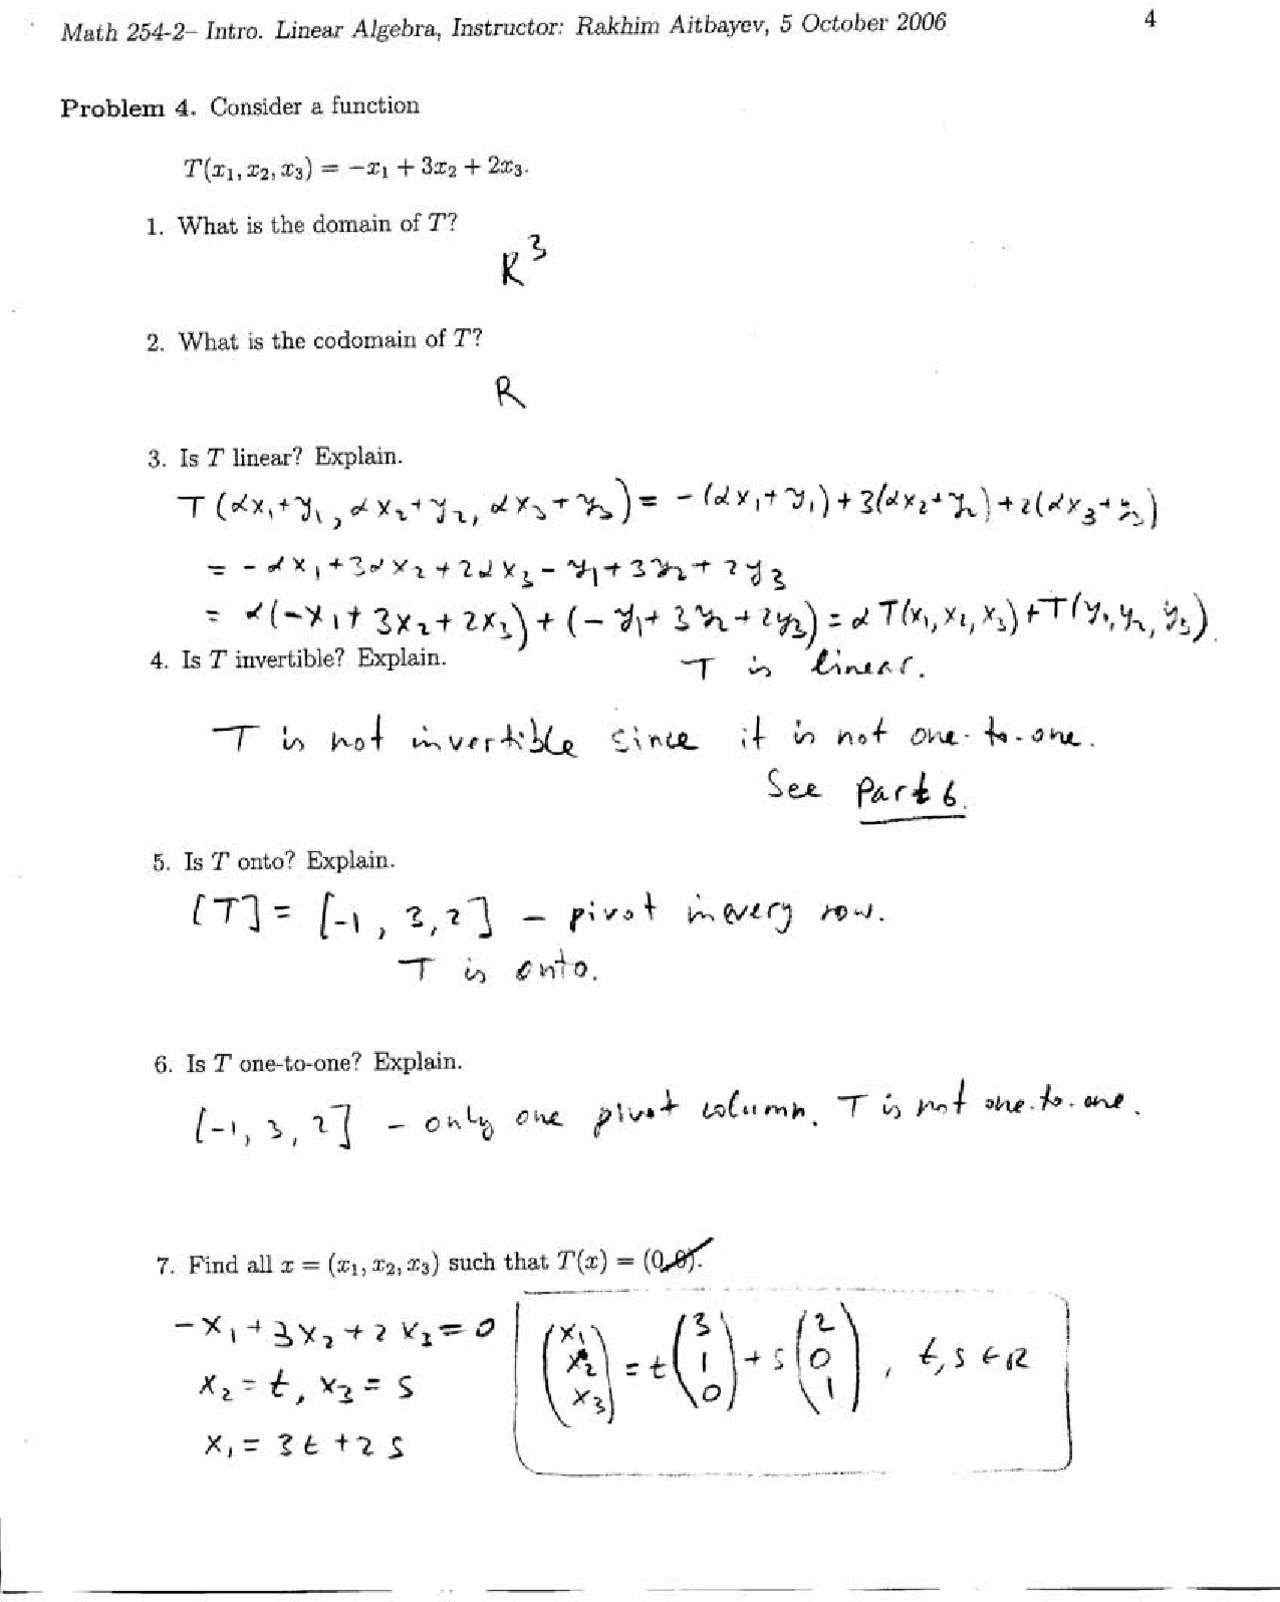 Math 254-2– Intro. Linear Algebra, Instructor: Rakhim Aitbayev, 5 October 2006
4
Problem 4. Consider a function
T(x₁, x₂, x₃) = −x₁ + 3x₂ + 2x₃.
1. What is the domain of T?
R³
2. What is the codomain of T?
R
3. Is T linear? Explain.
T(αx₁+y₁, αx₂+y₂, αx₃+y₃) = −(αx₁+y₁)+3(αx₂+y₂)+2(αx₃+y₃)
= −αx₁+3αx₂+2αx₃−y₁+3y₂+2y₃
= α(−x₁+3x₂+2x₃)+(−y₁+3y₂+2y₃)=αT(x₁,x₂,x₃)+T(y₁,y₂,y₃).
4. Is T invertible? Explain.
T is linear.
T is not invertible since it is not one-to-one.
See Part 6.
5. Is T onto? Explain.
[T] = [-1, 3, 2] – pivot in every row.
T is onto.
6. Is T one-to-one? Explain.
[-1, 3, 2] – only one pivot column. T is not one-to-one.
7. Find all x = (x₁, x₂, x₃) such that T(x) = (0,0).
−x₁+3x₂+2x₃=0
x₂=t, x₃=s
x₁=3t+2s
(x₁ x₂ x₃) = t(3 1 0) + s(2 0 1), t,s∈R